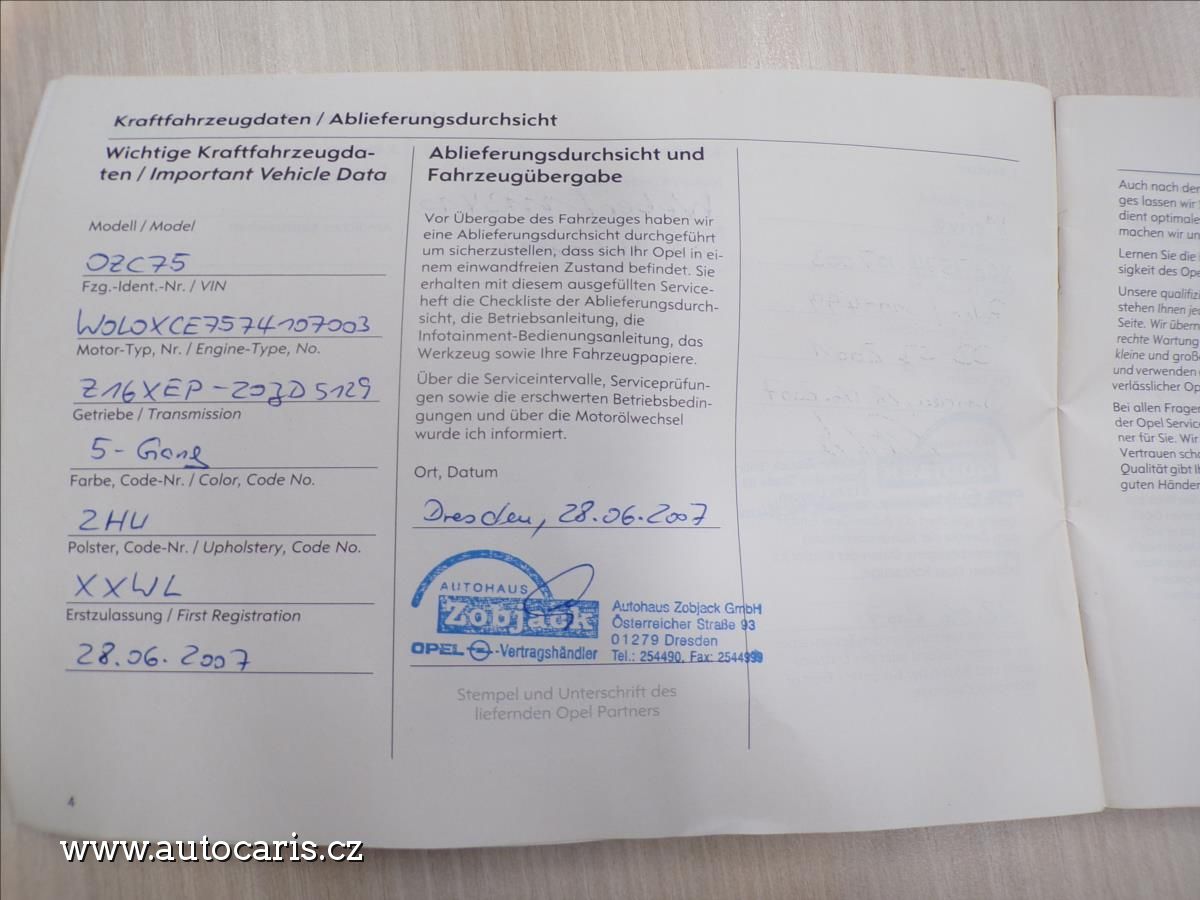 Kraftfahrzeugdaten / Ablieferungsdurchsicht
Wichtige Kraftfahrzeugda-
ten / Important Vehicle Data
Modell / Model
OZC75
Fzg.-Ident.-Nr. / VIN
W0L0XCE7574107003
Motor-Typ, Nr. / Engine-Type, No.
Z16XEP - 20JD5129
Getriebe / Transmission
5-Gang
Farbe, Code-Nr. / Color, Code No.
2HU
Polster, Code-Nr. / Upholstery, Code No.
XXWL
Erstzulassung / First Registration
28.06.2007
4
Ablieferungsdurchsicht und
Fahrzeugübergabe
Vor Übergabe des Fahrzeuges haben wir
eine Ablieferungsdurchsicht durchgeführt
um sicherzustellen, dass sich Ihr Opel in ei-
nem einwandfreien Zustand befindet. Sie
erhalten mit diesem ausgefüllten Service-
heft die Checkliste der Ablieferungsdurch-
sicht, die Betriebsanleitung, die
Infotainment-Bedienungsanleitung, das
Werkzeug sowie Ihre Fahrzeugpapiere.
Über die Serviceintervalle, Serviceprüfun-
gen sowie die erschwerten Betriebsbedin-
gungen und über die Motorölwechsel
wurde ich informiert.
Ort, Datum
Dresden, 28.06.2007
AUTOHAUS
Zobjack
OPEL -Vertragshändler
Autohaus Zobjack GmbH
Österreicher Straße 93
01279 Dresden
Tel.: 254490, Fax: 2544999
Stempel und Unterschrift des
liefernden Opel Partners
Auch nach der
ges lassen wir
dient optimale
machen wir un
Lernen Sie die
sigkeit des Ope
Unsere qualifizi
stehen Ihnen jed
Seite. Wir übern
rechte Wartung
kleine und große
und verwenden
verlässlicher Op
Bei allen Fragen
der Opel Service
ner für Sie. Wir
Vertrauen scho
Qualität gibt Ih
guten Händen
www.autocaris.cz